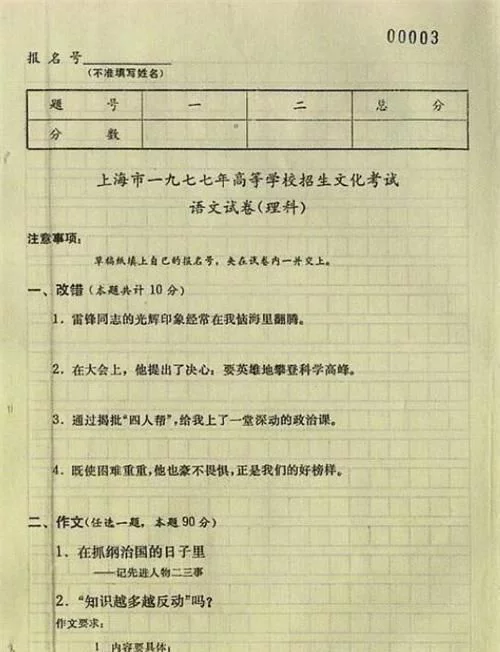 00003
报名号
(不准填写姓名)
题 号 一 二 总 分
分 数
上海市一九七七年高等学校招生文化考试
语文试卷(理科)
注意事项:
草稿纸填上自己的报名号,夹在试卷内一并交上。
一、改错(本题共计10分)
1. 雷锋同志的光辉印象经常在我恼海里翻腾。
2. 在大会上,他提出了决心:要英雄地攀登科学高峰。
3. 通过揭批“四人帮”,给我上了一堂深动的政治课。
4. 既使困难重重,他也豪不畏惧,正是我们的好榜样。
二、作文(任选一题,本题90分)
1. 在抓纲治国的日子里
——记先进人物二三事
2. “知识越多越反动”吗?
作文要求:
1 内容要具体;